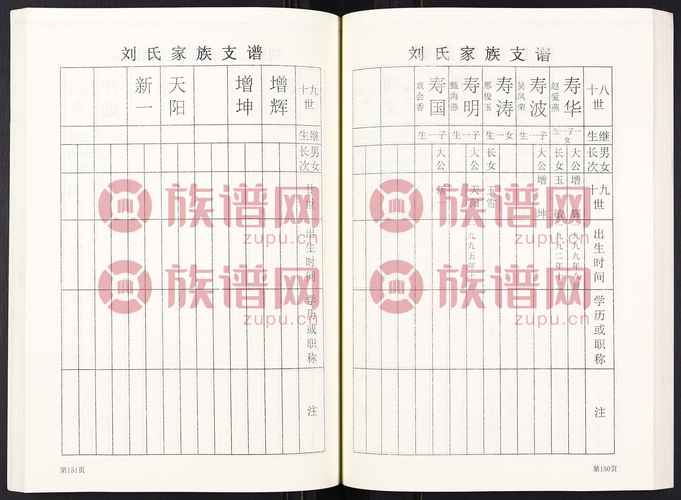 刘氏家族支谱
十八世
寿华
赵爱燕
寿波
吴凤荣
寿涛
邢俊玉
寿明
甄海燕
寿国
袁会香
继生
一子一女
一子
一女
一子
一子
男女长次
大公
长女
大公
长女
大公
大公
十九世
增
玉
增坤
天阳
出生时间
学历或职称
注
第150页
刘氏家族支谱
十九世
增辉
增坤
天阳
新一
继生
男女长次
出生时间
学历或职称
注
第151页
族谱网
zupu.cn
族谱网
zupu.cn
族谱网
zupu.cn
族谱网
zupu.cn